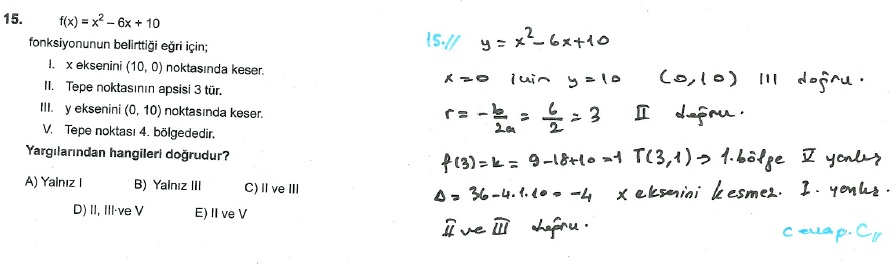 15. f(x) = x² – 6x + 10
fonksiyonunun belirttiği eğri için;
I. x eksenini (10, 0) noktasında keser.
II. Tepe noktasının apsisi 3 tür.
III. y eksenini (0, 10) noktasında keser.
V. Tepe noktası 4. bölgededir.
Yargılarından hangileri doğrudur?
A) Yalnız I B) Yalnız III C) II ve III
D) II, III ve V E) II ve V
15.// y = x²-6x+10
x=0 için y=10 (0,10) III doğru.
r = -b/2a = 6/2 = 3 II doğru.
f(3)=k = 9-18+10=1 T(3,1) → 1.bölge V yanlış
Δ = 36-4.1.10 = -4 x eksenini kesmez. I. yanlış.
II ve III doğru.
Cevap. C//